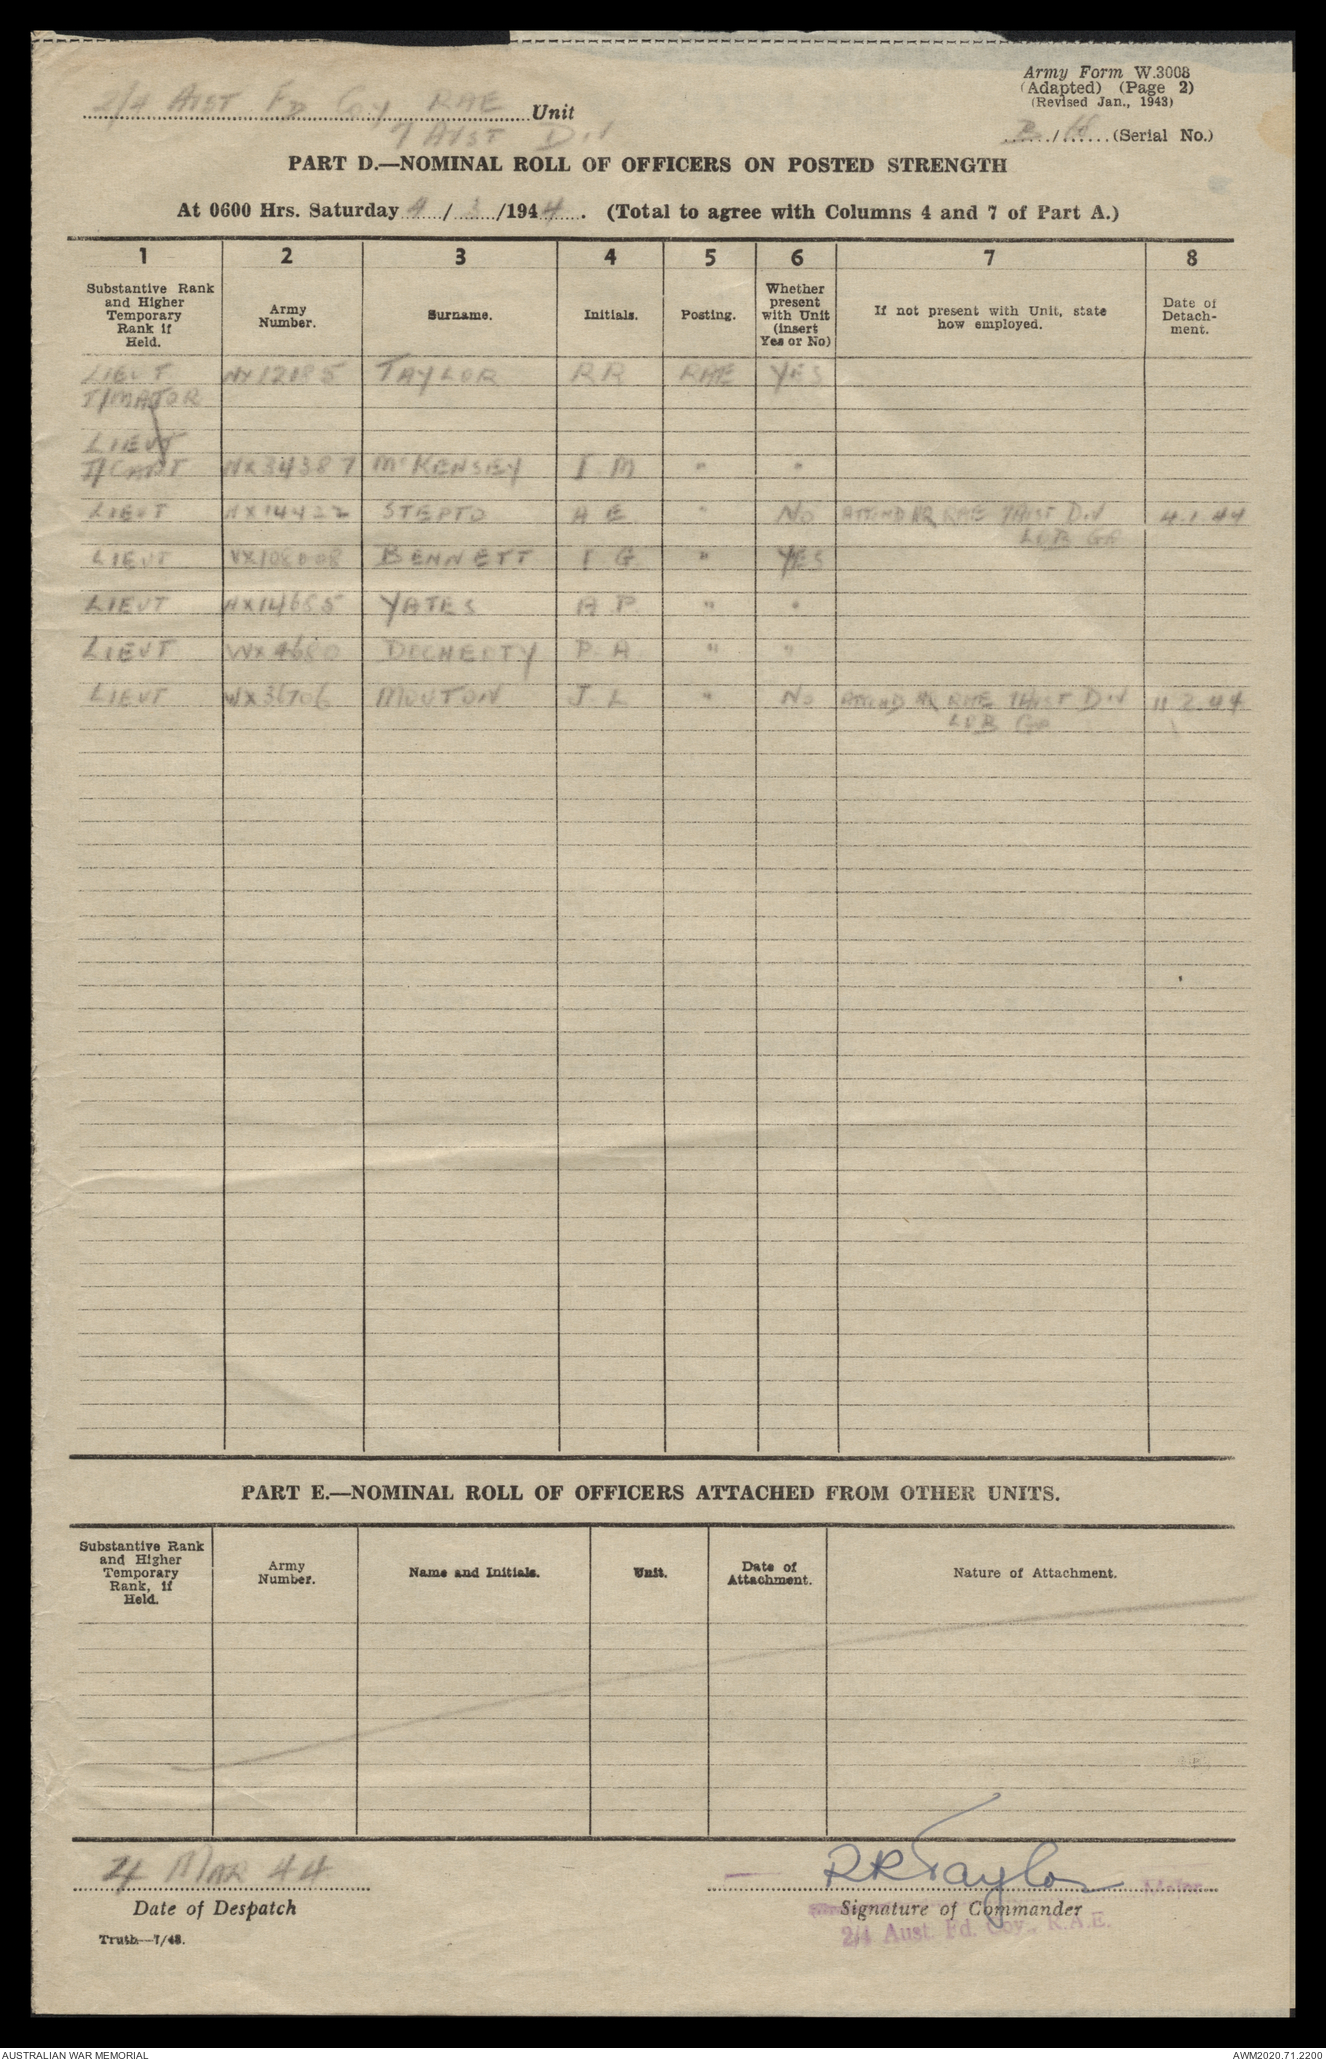 Army Form W.3008
(Adapted) (Page 2)
(Revised Jan., 1943)
2/4 AUST FD COY RAE Unit
7 AUST DIV
B / 18 (Serial No.)
PART D.—NOMINAL ROLL OF OFFICERS ON POSTED STRENGTH
At 0600 Hrs. Saturday 4 / 3 /1944. (Total to agree with Columns 4 and 7 of Part A.)
1 2 3 4 5 6 7 8
Substantive Rank and Higher Temporary Rank if Held. Army Number. Surname. Initials. Posting. Whether present with Unit (insert Yes or No) If not present with Unit, state how employed. Date of Detachment.
LIEUT TAYLOR RR RAE YES
T/MAJOR
LIEUT
T/CAPT NX34387 McKENSEY I M " "
LIEUT STEPTO A E " NO ATTEND HQ RAE 7 AUST DIV 4.1.44
LOB GP
LIEUT BENNETT I G " YES
LIEUT YATES A P " "
LIEUT DOCHERTY P. A " "
LIEUT MOUTON J. L " NO ATTEND HQ RAE 7 AUST DIV 11.2.44
LOB GP
PART E.—NOMINAL ROLL OF OFFICERS ATTACHED FROM OTHER UNITS.
Substantive Rank and Higher Temporary Rank, if Held. Army Number. Name and Initials. Unit. Date of Attachment. Nature of Attachment.
4 MAR 44 RRTaylor Major
Date of Despatch Signature of Commander
2/4 Aust. Fd. Coy., R.A.E.
Truth—7/43.
AUSTRALIAN WAR MEMORIAL AWM2020.71.2200